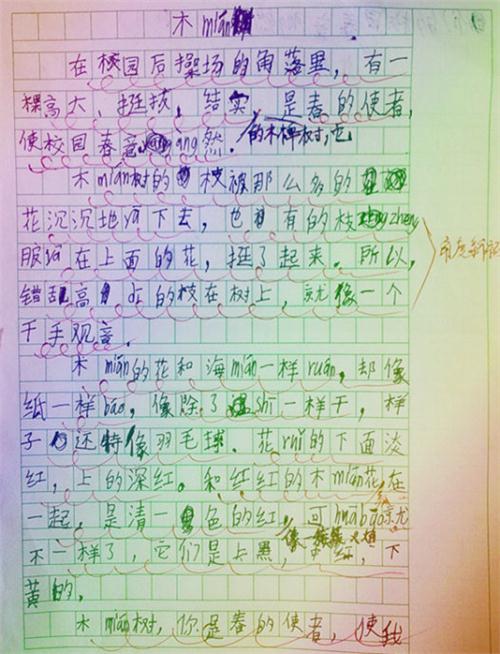 木mián
在校园后操场的角落里，有一
棵高大、挺拔、结实、是春的使者，
使校园春意 àng然。的木棉树，它
木mián树的 枝被那么多的
花沉沉地 下去，也有的枝 zheng
服 在上面的花，挺了起来。所以，
错乱高 的枝在树上，就像一个
千手观音。
木mián的花和海mián一样ruǎn，却像
纸一样báo，像除了 shī一样干，样
子还特像羽毛球。花ruǐ的下面淡
红，上的深红。和红红的木mián花在
一起，是清一色的红，可huābāo就尤
像一簇簇火焰
不一样了，它们是上黑，中红，下
黄的。
木mián树，你是春的使者，使我